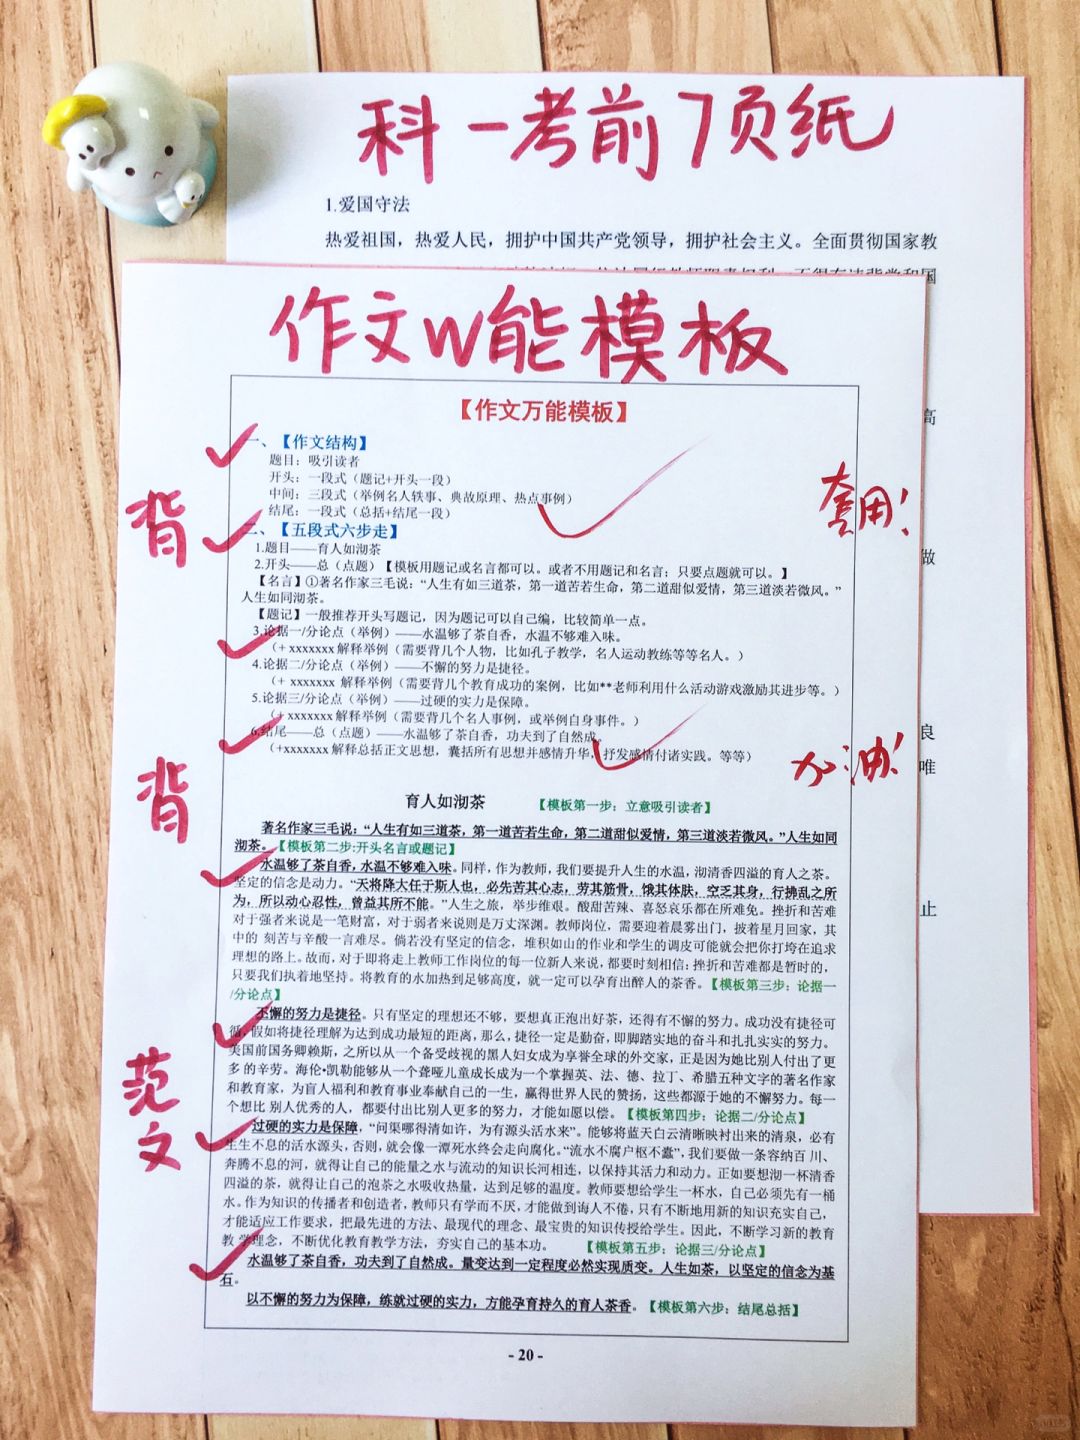 科一考前7页纸
1.爱国守法
热爱祖国，热爱人民，拥护中国共产党领导，拥护社会主义。全面贯彻国家教
国
高
做
良
唯
止
作文W能模板
【作文万能模板】
一、【作文结构】
题目：吸引读者
开头：一段式（题记+开头一段）
中间：三段式（举例名人轶事、典故原理、热点事例）
套用！
结尾：一段式（总括+结尾一段）
背
二、【五段式六步走】
1.题目——育人如沏茶
2.开头——总（点题）【模板用题记或名言都可以。或者不用题记和名言；只要点题就可以。】
【名言】①著名作家三毛说：“人生有如三道茶，第一道苦若生命，第二道甜似爱情，第三道淡若微风。”
人生如同沏茶。
【题记】一般推荐开头写题记，因为题记可以自己编，比较简单一点。
3.论据一/分论点（举例）——水温够了茶自香，水温不够难入味。
（+ xxxxxxx 解释举例（需要背几个人物，比如孔子教学，名人运动教练等等名人。）
4.论据二/分论点（举例）——不懈的努力是捷径。
（+ xxxxxxx 解释举例（需要背几个教育成功的案例，比如**老师利用什么活动游戏激励其进步等。）
5.论据三/分论点（举例）——过硬的实力是保障。
（+ xxxxxxx 解释举例（需要背几个名人事例，或举例自身事件。）
6.结尾——总（点题）——水温够了茶自香，功夫到了自然成。
（+xxxxxxx 解释总括正文思想，囊括所有思想并感情升华，抒发感情付诸实践。等等）
加油！
背
育人如沏茶 【模板第一步：立意吸引读者】
著名作家三毛说：“人生有如三道茶，第一道苦若生命，第二道甜似爱情，第三道淡若微风。”人生如同
沏茶。【模板第二步:开头名言或题记】
水温够了茶自香，水温不够难入味。同样，作为教师，我们要提升人生的水温，沏清香四溢的育人之茶。
坚定的信念是动力。“天将降大任于斯人也，必先苦其心志，劳其筋骨，饿其体肤，空乏其身，行拂乱之所
为，所以动心忍性，曾益其所不能。”人生之旅，举步维艰。酸甜苦辣、喜怒哀乐都在所难免。挫折和苦难
对于强者来说是一笔财富，对于弱者来说则是万丈深渊。教师岗位，需要迎着晨雾出门，披着星月回家，其
中的 刻苦与辛酸一言难尽。倘若没有坚定的信念，堆积如山的作业和学生的调皮可能就会把你打垮在追求
理想的路上。故而，对于即将走上教师工作岗位的每一位新人来说，都要时刻相信：挫折和苦难都是暂时的，
只要我们执着地坚持。将教育的水加热到足够高度，就一定可以孕育出醉人的茶香。【模板第三步：论据一
/分论点】
不懈的努力是捷径。只有坚定的理想还不够，要想真正泡出好茶，还得有不懈的努力。成功没有捷径可
循，假如将捷径理解为达到成功最短的距离，那么，捷径一定是勤奋，即脚踏实地的奋斗和扎扎实实的努力。
美国前国务卿赖斯，之所以从一个备受歧视的黑人妇女成为享誉全球的外交家，正是因为她比别人付出了更
多的辛劳。海伦•凯勒能够从一个聋哑儿童成长成为一个掌握英、法、德、拉丁、希腊五种文字的著名作家
和教育家，为盲人福利和教育事业奉献自己的一生，赢得世界人民的赞扬，这些都源于她的不懈努力。每一
个想比 别人优秀的人，都要付出比别人更多的努力，才能如愿以偿。【模板第四步：论据二/分论点】
范文
过硬的实力是保障，“问渠哪得清如许，为有源头活水来”。能够将蓝天白云清晰映衬出来的清泉，必有
生生不息的活水源头，否则，就会像一潭死水终会走向腐化。“流水不腐户枢不蠹”，我们要做一条容纳百 川、
奔腾不息的河，就得让自己的能量之水与流动的知识长河相连，以保持其活力和动力。正如要想沏一杯清香
四溢的茶，就得让自己的泡茶之水吸收热量，达到足够的温度。教师要想给学生一杯水，自己必须先有一桶
水。作为知识的传播者和创造者，教师只有学而不厌，才能做到诲人不倦，只有不断地用新的知识充实自己，
才能适应工作要求，把最先进的方法、最现代的理念、最宝贵的知识传授给学生。因此，不断学习新的教育
教 学理念，不断优化教育教学方法，夯实自己的基本功。 【模板第五步：论据三/分论点】
水温够了茶自香，功夫到了自然成。量变达到一定程度必然实现质变。人生如茶，以坚定的信念为基
石。
以不懈的努力为保障，练就过硬的实力，方能孕育持久的育人茶香。【模板第六步：结尾总括】
- 20 -